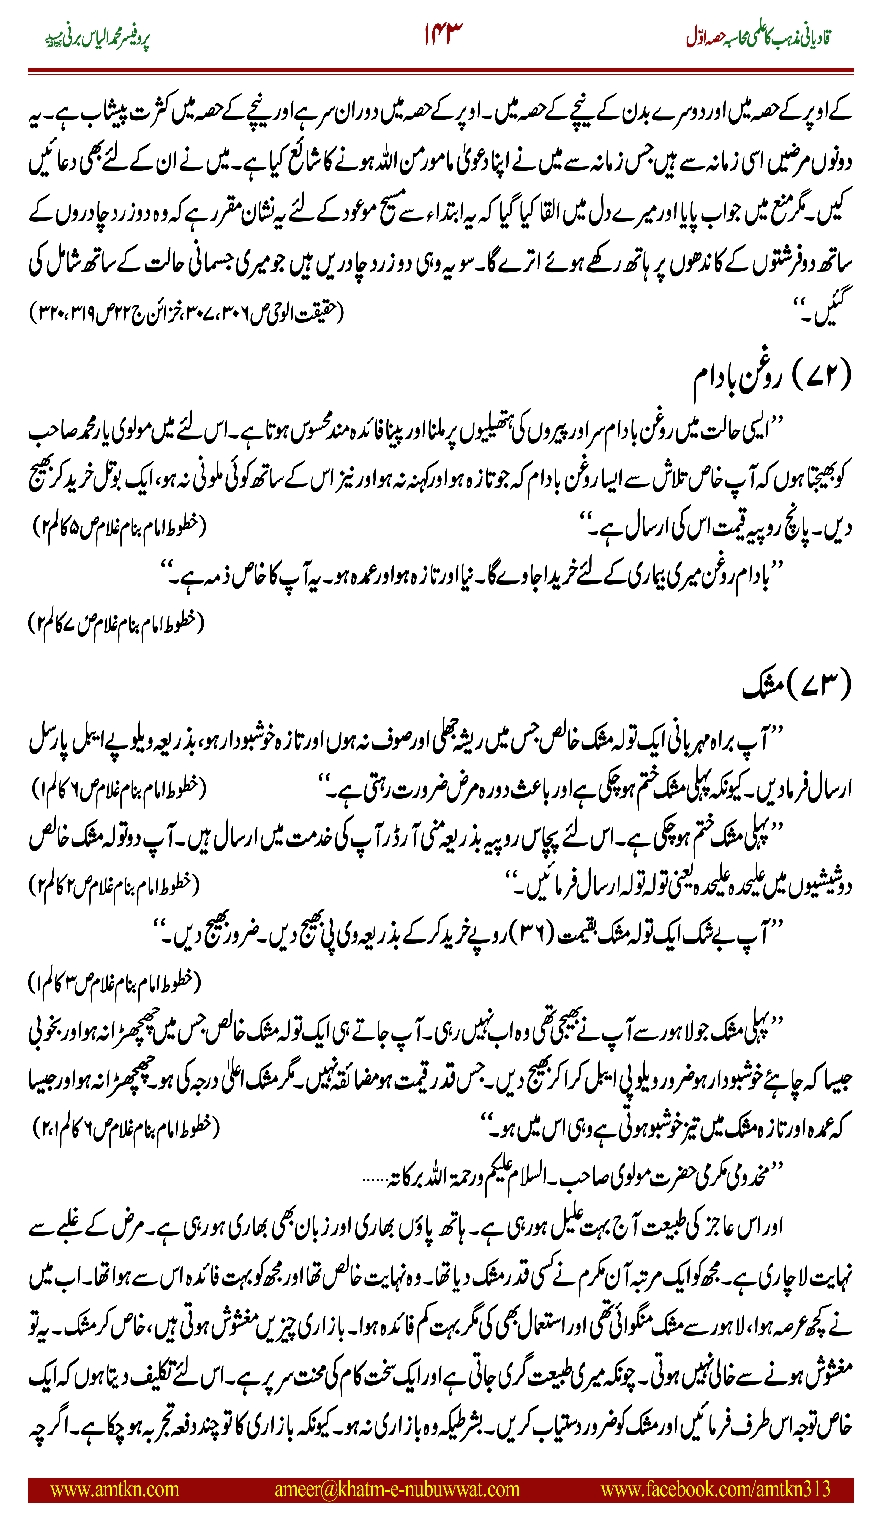 قادیانی مذہب کا علمی محاسبہ حصہ اوّل ۱۴۳ پروفیسر محمد الیاس برنی
کے اوپر کے حصہ میں اور دوسرے بدن کے نیچے کے حصہ میں۔ اوپر کے حصہ میں دوران سر ہے اور نیچے کے حصہ میں کثرت پیشاب ہے۔ یہ
دونوں مرضیں اسی زمانہ سے ہیں جس زمانہ سے میں نے اپنا دعویٰ مامور من اللہ ہونے کا شائع کیا ہے۔ میں نے ان کے لئے بھی دعائیں
کیں۔ مگر منع میں جواب پایا اور میرے دل میں القا کیا گیا کہ یہ ابتداء سے مسیح موعود کے لئے یہ نشان مقرر ہے کہ وہ دو زرد چادروں کے
ساتھ دو فرشتوں کے کاندھوں پر ہاتھ رکھے ہوئے اترے گا۔ سو یہ وہی دو زرد چادریں ہیں جو میری جسمانی حالت کے ساتھ شامل کی
گئیں۔‘‘ (حقیقت الوحی ص۳۰۶، ۳۰۷، خزائن ج۲۲ ص۳۱۹، ۳۲۰)
(۷۲) روغن بادام
’’ایسی حالت میں روغن بادام سر اور پیروں کی ہتھیلیوں پر ملنا اور پینا فائدہ مند محسوس ہوتا ہے۔ اس لئے میں مولوی یار محمد صاحب
کو بھیجتا ہوں کہ آپ خاص تلاش سے ایسا روغن بادام کہ جو تازہ ہو اور کہنہ نہ ہو اور نیز اس کے ساتھ کوئی ملونی نہ ہو، ایک بوتل خرید کر بھیج
دیں۔ پانچ روپیہ قیمت اس کی ارسال ہے۔‘‘ (خطوط امام بنام غلام ص۵ کالم۲)
’’بادام روغن میری بیماری کے لئے خریدا جاوے گا۔ نیا اور تازہ ہو اور عمدہ ہو۔ یہ آپ کا خاص ذمہ ہے۔‘‘
(خطوط امام بنام غلام ص۷ کالم۲)
(۷۳) مشک
’’آپ براہ مہربانی ایک تولہ مشک خالص جس میں ریشہ جھلی اور صوف نہ ہوں اور تازہ خوشبودار ہو، بذریعہ ویلوپے ایبل پارسل
ارسال فرما دیں۔ کیونکہ پہلی مشک ختم ہوچکی ہے اور باعث دورہ مرض ضرورت رہتی ہے۔‘‘ (خطوط امام بنام غلام ص۶ کالم۱)
’’پہلی مشک ختم ہوچکی ہے۔ اس لئے پچاس روپیہ بذریعہ منی آرڈر آپ کی خدمت میں ارسال ہیں۔ آپ دو تولہ مشک خالص
دو شیشیوں میں علیحدہ علیحدہ یعنی تولہ تولہ ارسال فرمائیں۔‘‘ (خطوط امام بنام غلام ص۲ کالم۲)
’’آپ بے شک ایک تولہ مشک بقیمت (۳۶) روپے خرید کر کے بذریعہ وی پی بھیج دیں۔ ضرور بھیج دیں۔‘‘
(خطوط امام بنام غلام ص۳ کالم۱)
’’پہلی مشک جو لاہور سے آپ نے بھیجی تھی وہ اب نہیں رہی۔ آپ جاتے ہی ایک تولہ مشک خالص جس میں چھچھڑا نہ ہو اور بخوبی
جیسا کہ چاہئے خوشبودار ہو ضرور ویلوپی ایبل کرا کر بھیج دیں۔ جس قدر قیمت ہو مضائقہ نہیں۔ مگر مشک اعلیٰ درجہ کی ہو۔ چھچھڑا نہ ہو اور جیسا
کہ عمدہ اور تازہ مشک میں تیز خوشبو ہوتی ہے وہی اس میں ہو۔‘‘ (خطوط امام بنام غلام ص۶ کالم۲،۱)
’’مخدومی مکرمی حضرت مولوی صاحب۔ السلام علیکم ورحمۃ اللہ برکاتہ......
اور اس عاجز کی طبیعت آج بہت علیل ہو رہی ہے۔ ہاتھ پاؤں بھاری اور زبان بھی بھاری ہو رہی ہے۔ مرض کے غلبے سے
نہایت لاچاری ہے۔ مجھ کو ایک مرتبہ آن مکرم نے کسی قدر مشک دیا تھا۔ وہ نہایت خالص تھا اور مجھ کو بہت فائدہ اس سے ہوا تھا۔ اب میں
نے کچھ عرصہ ہوا، لاہور سے مشک منگوائی تھی اور استعمال بھی کی مگر بہت کم فائدہ ہوا۔ بازاری چیزیں مغشوش ہوتی ہیں، خاص کر مشک۔ یہ تو
مغشوش ہونے سے خالی نہیں ہوتی۔ چونکہ میری طبیعت گری جاتی ہے اور ایک سخت کام کی محنت سر پر ہے۔ اس لئے تکلیف دیتا ہوں کہ ایک
خاص توجہ اس طرف فرمائیں اور مشک کو ضرور دستیاب کریں۔ بشرطیکہ وہ بازاری نہ ہو۔ کیونکہ بازاری کا تو چند دفعہ تجربہ ہوچکا ہے۔ اگرچہ
www.amtkn.com ameer@khatm-e-nubuwwat.com www.facebook.com/amtkn313